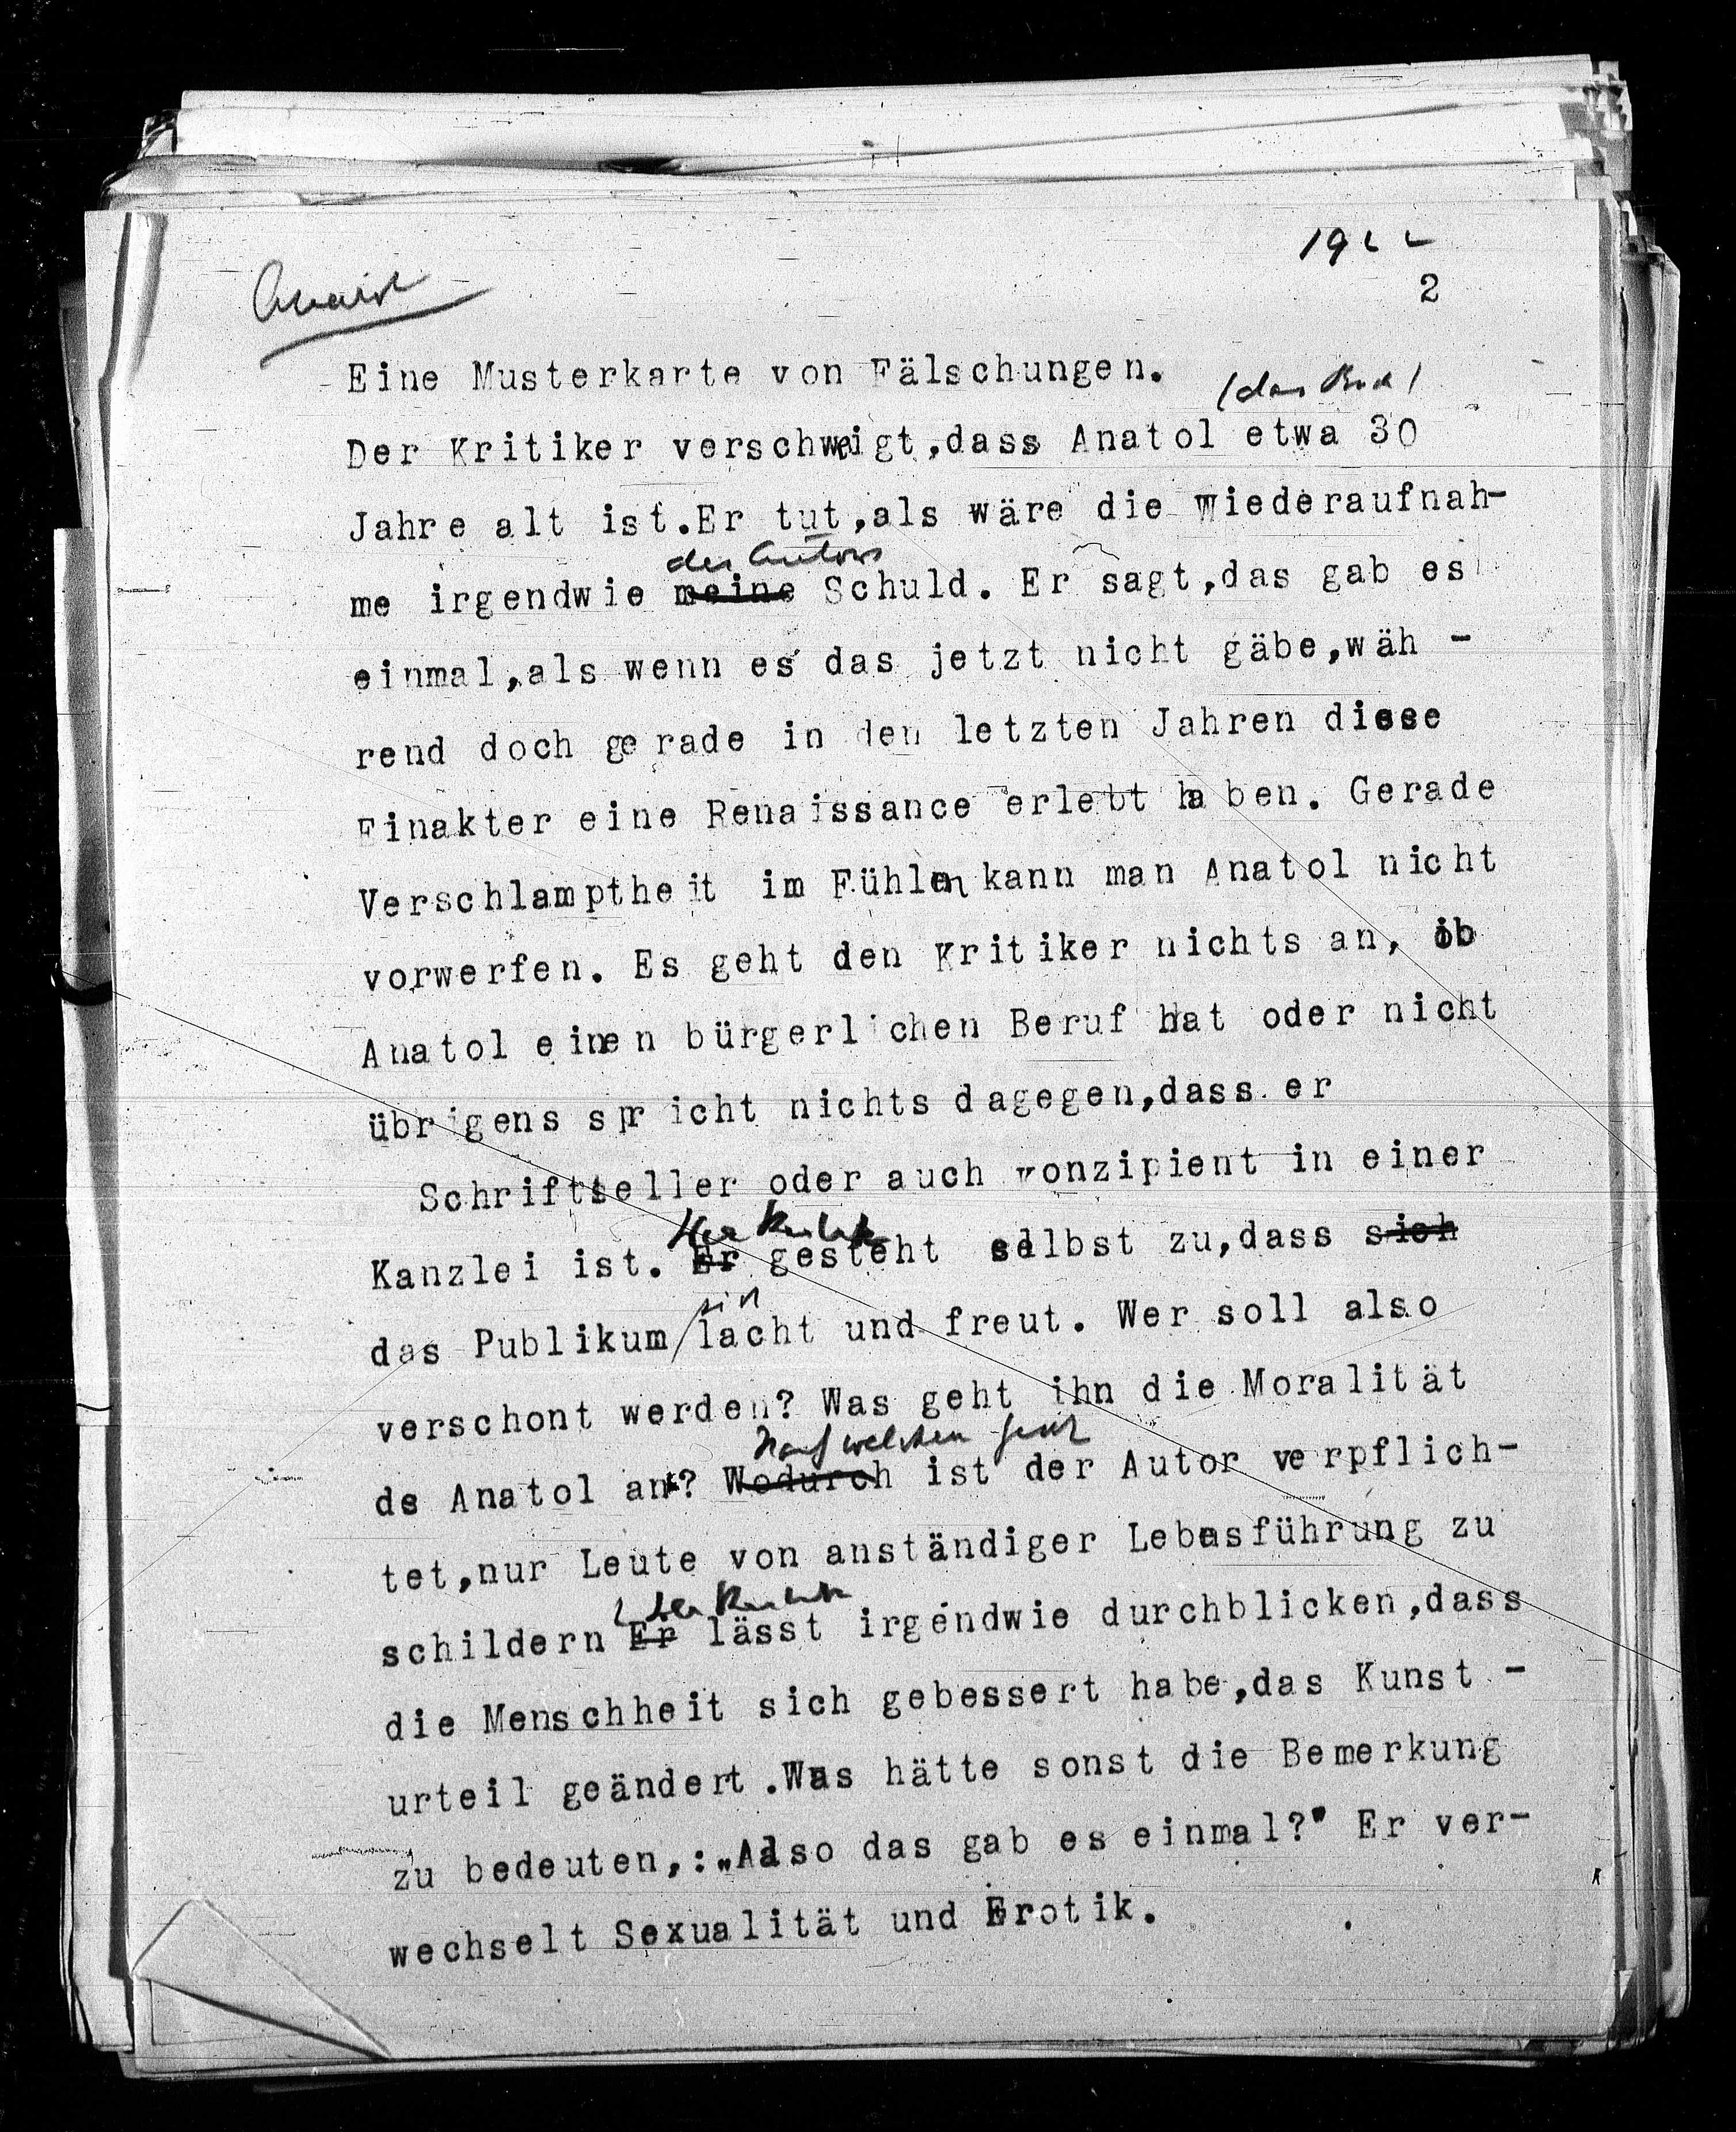 1922
2
Eine Musterkarte von Fälschungen.
(das Buch)
Der Kritiker verschweigt,dass Anatol etwa 30
Jahre alt ist.Er tut,als wäre die Wiederaufnah-
des Autors
me irgendwie meine Schuld. Er sagt,das gab es
einmal,als wenn es das jetzt nicht gäbe,wäh -
rend doch gerade in den letzten Jahren diese
Einakter eine Renaissance erlebt haben. Gerade
Verschlamptheit im Fühlen kann man Anatol nicht
vorwerfen. Es geht den Kritiker nichts an, ob
Anatol einen bürgerlichen Beruf hat oder nicht
übrigens spricht nichts dagegen,dass er
Schriftseller oder auch Konzipient in einer
Der Kritiker
Kanzlei ist. Er gesteht selbst zu,dass sich
sich
das Publikum/lacht und freut. Wer soll also
verschont werden? Was geht ihn die Moralität
Nach welchem Gesetz
ds Anatol an? Wodurch ist der Autor verpflich-
tet,nur Leute von anständiger Lebensführung zu
Der Kritiker
schildern Er lässt irgendwie durchblicken,dass
die Menschheit sich gebessert habe,das Kunst -
urteil geändert.Was hätte sonst die Bemerkung
zu bedeuten,:„Also das gab es einmal?" Er ver-
wechselt Sexualität und Erotik.